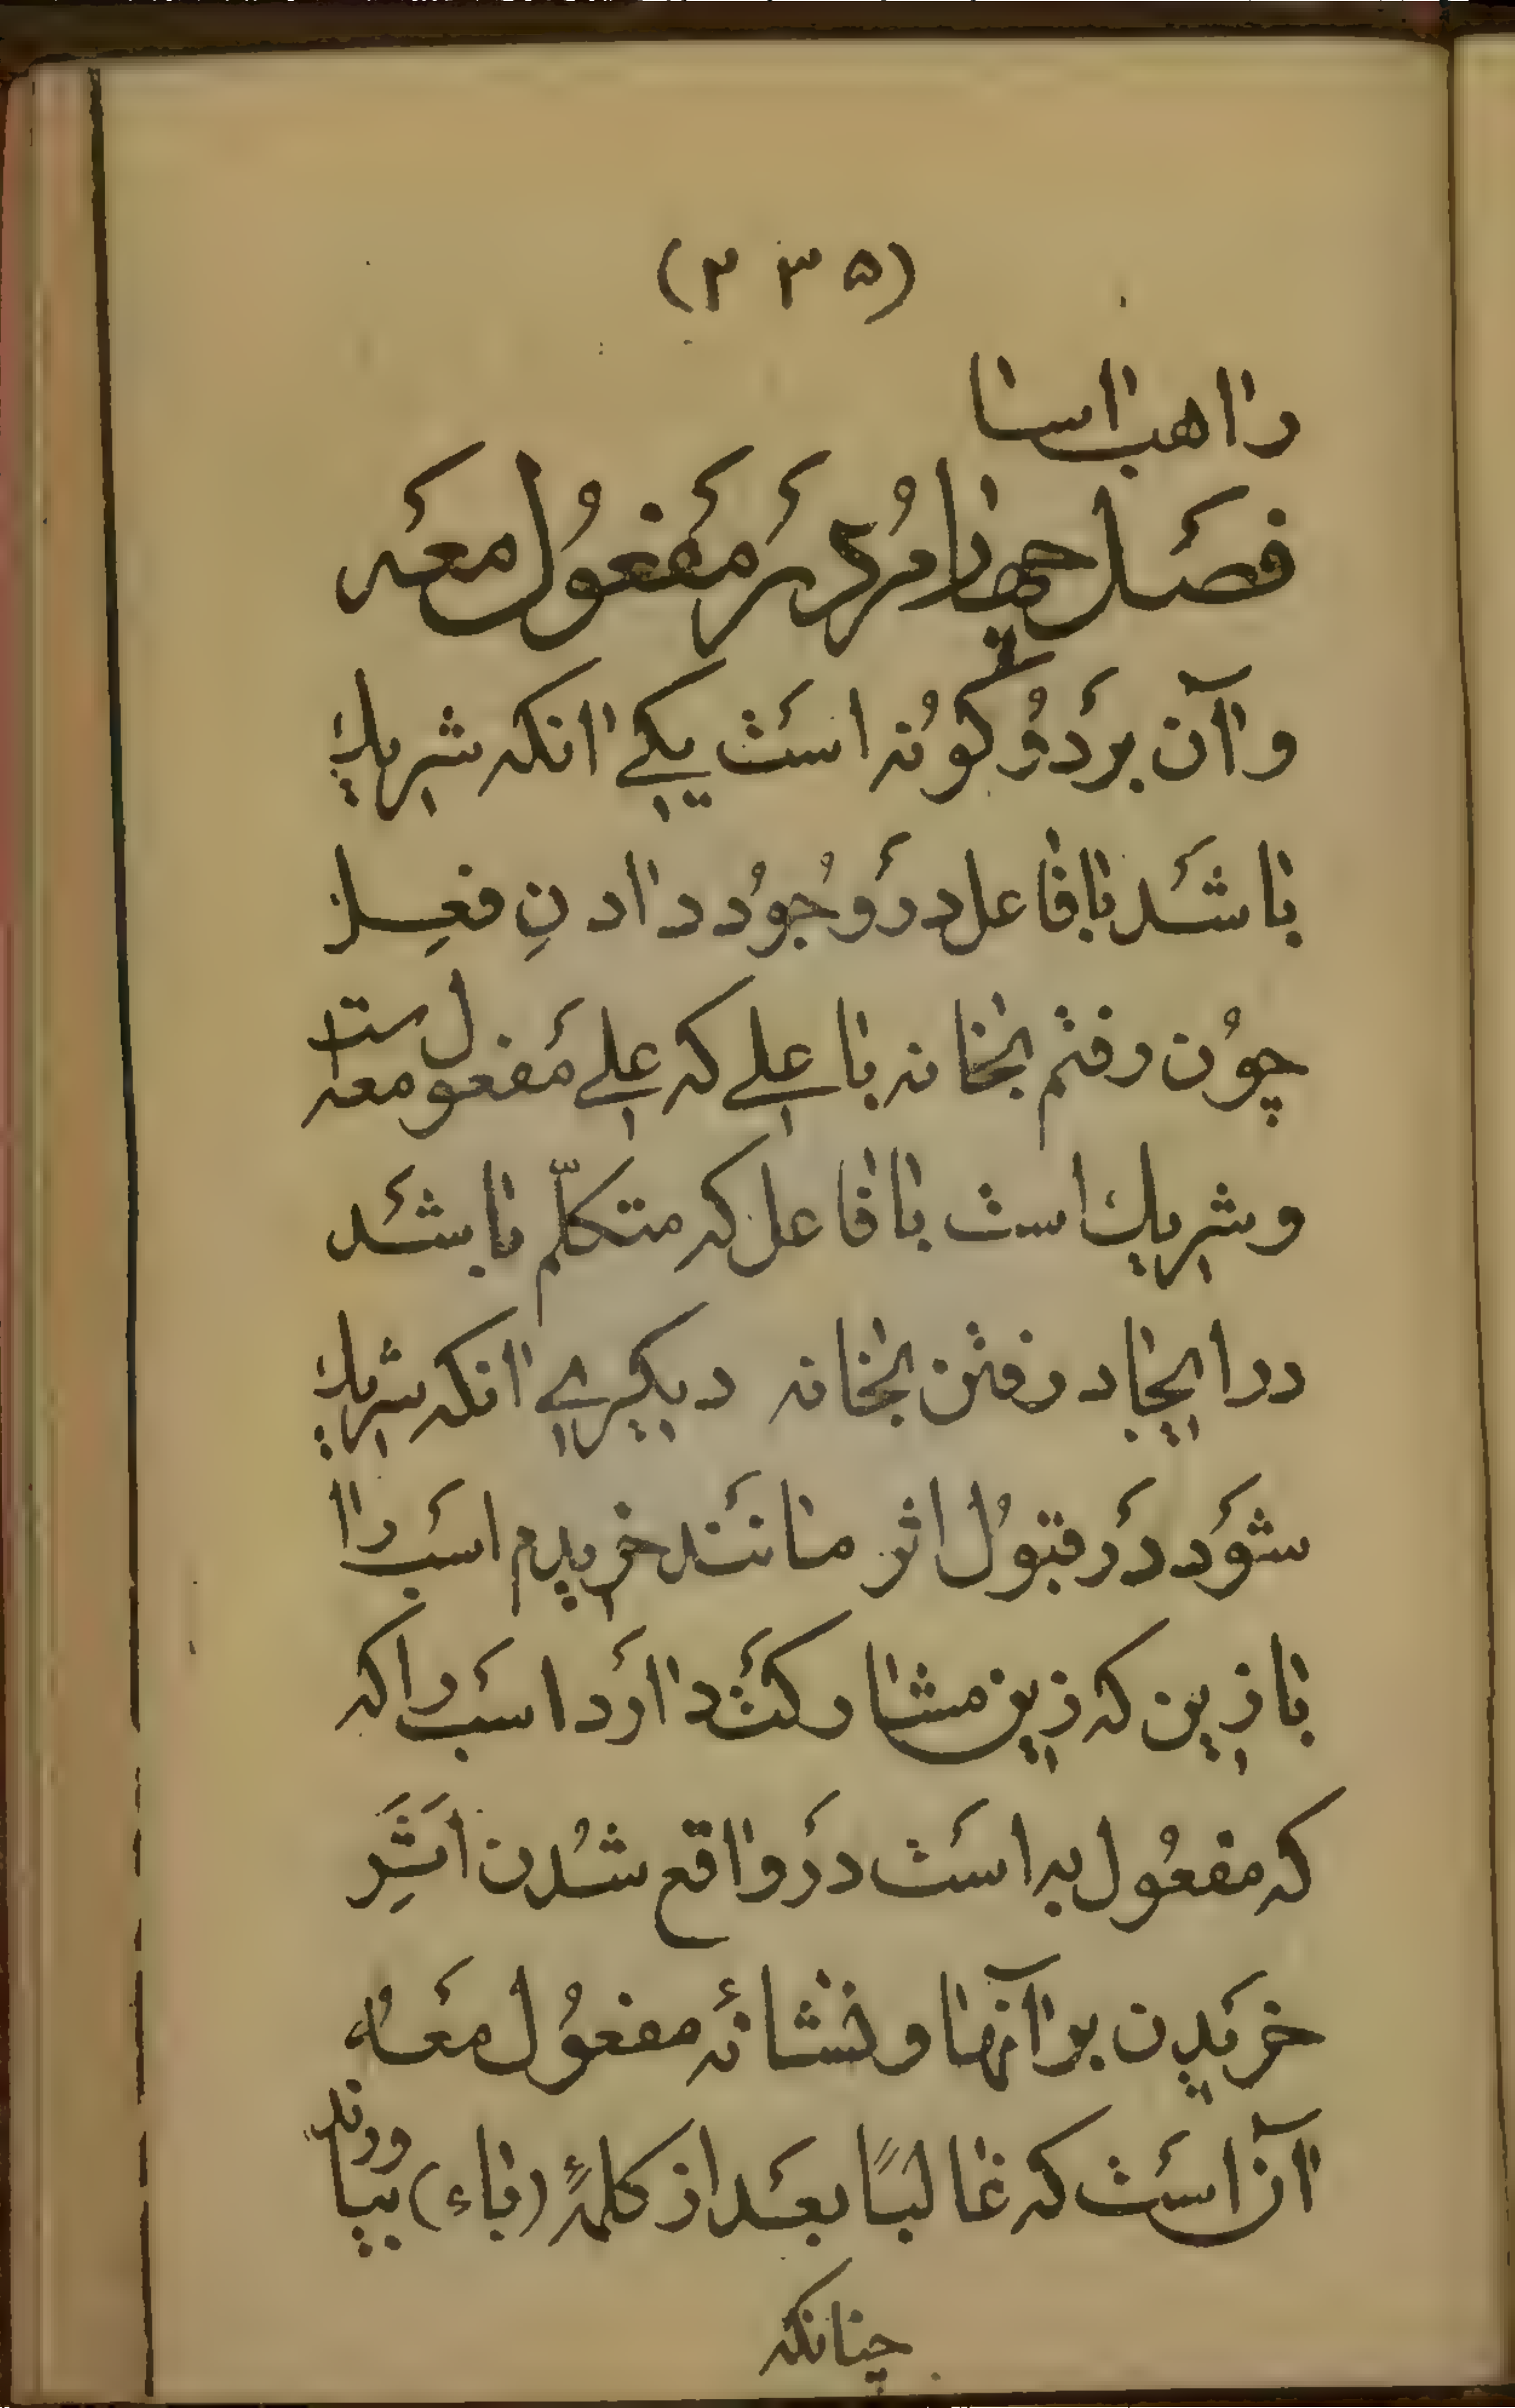 (۲۳۵)
راهب آسا
فصل چهارم در مفعول معه
و آن بر دو گونه است یکی آنکه شریک
باشد با فاعل در وجود دادن فعل
چون رفتم بخانه با علی که علی مفعول معه است
و شریک است با فاعل که متکلّم باشد
در ایجاد رفتن بخانه دیگری آنکه شریک
شود در قبول اثر مانند خریدم اسب را
با زین که زین مشارکت دارد اسب را که
که مفعول به است در واقع شدن اَثَرِ
خریدن بر آنها و نشانهٔ مفعول معه
آن است که غالبًا بعد از کلمهٔ (باء) بیاورند
چنانکه